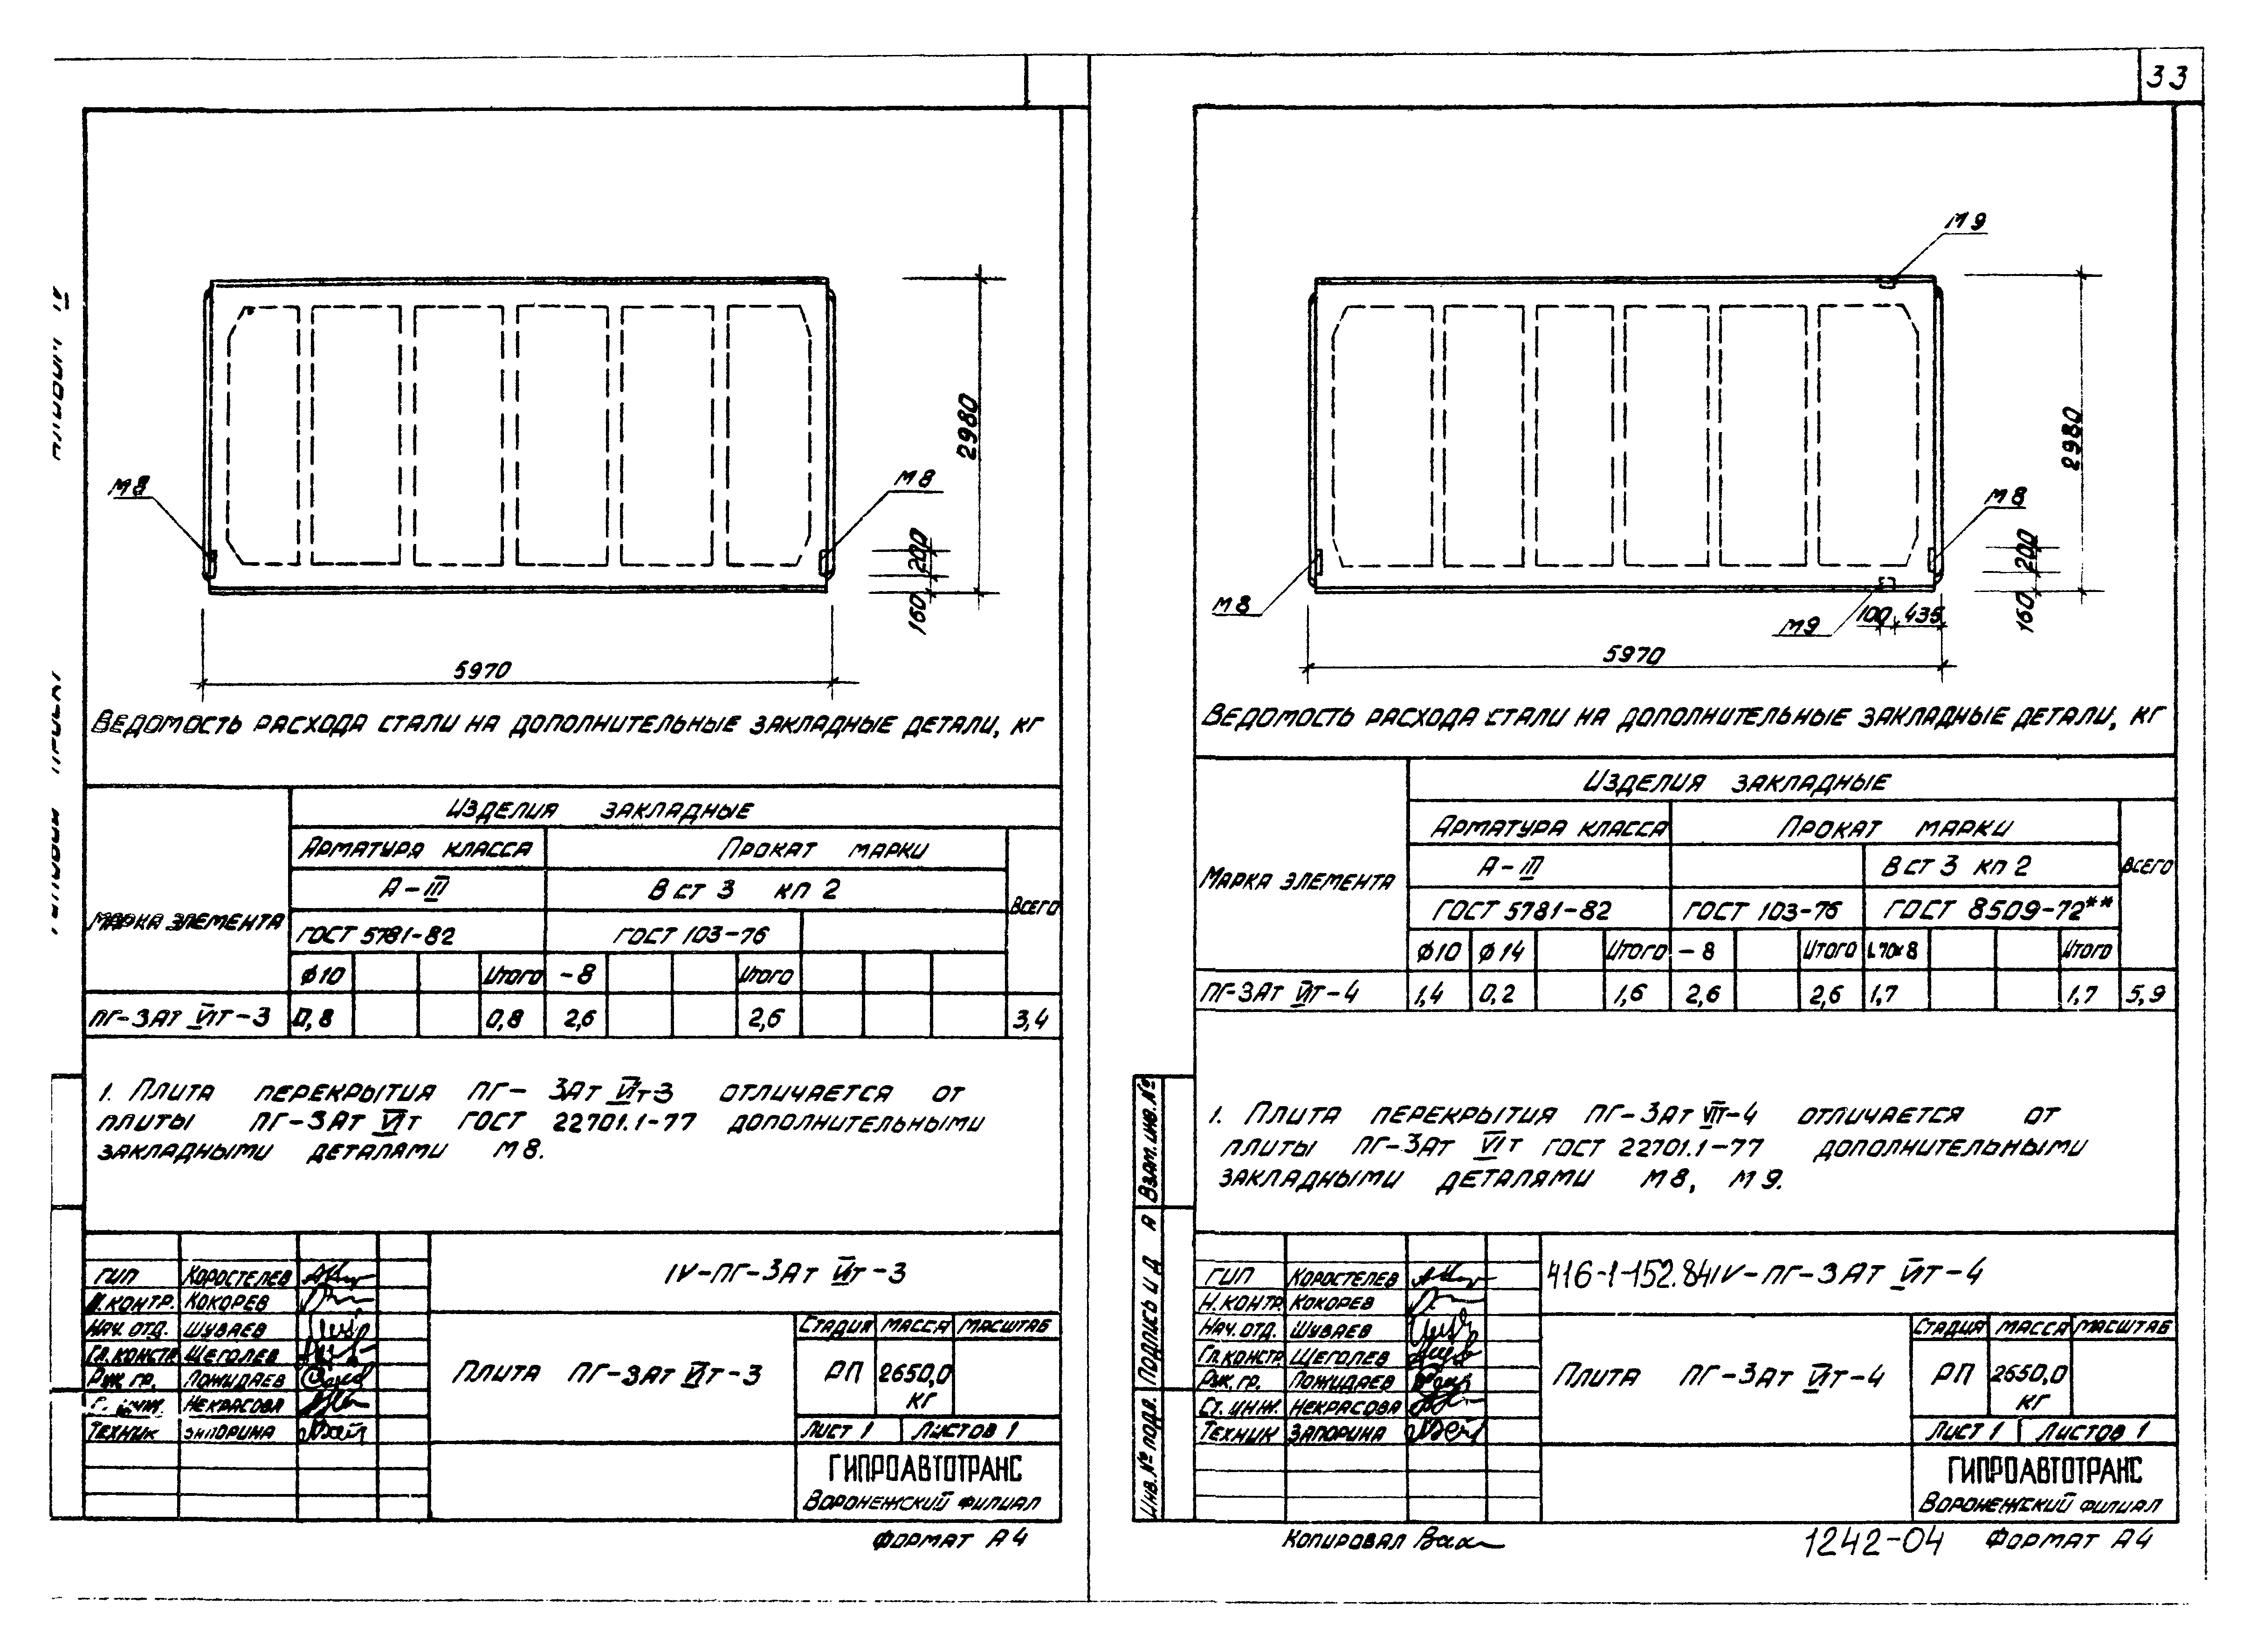 33
М8
М8
2980
200
160
5970
Ведомость расхода стали на дополнительные закладные детали, кг
Марка элемента
Изделия закладные
Арматура класса
Прокат марки
Всего
А-III
В ст 3 кп 2
ГОСТ 5781-82
ГОСТ 103-76
ф10
Итого
-8
Итого
ПГ-3Ат VIт-3
0,8
0,8
2,6
2,6
3,4
1. Плита перекрытия ПГ-3Ат VIт-3 отличается от
плиты ПГ-3Ат VIт ГОСТ 22701.1-77 дополнительными
закладными деталями М8.
ГИП Коростелев
Н.контр. Кокорев
Нач. отд. Шуваев
Гл.констр Щеголев
Рук. гр. Пожидаев
Некрасова
Техник Запорина
IV-ПГ-3Ат VIт-3
Плита ПГ-3Ат VIт-3
Стадия Масса Масштаб
РП 2650,0
кг
Лист 1 Листов 1
ГИПРОАВТОТРАНС
Воронежский филиал
Формат А4
М9
2980
М8
200
160
М8
М9
100
435
5970
Ведомость расхода стали на дополнительные закладные детали, кг
Марка элемента
Изделия закладные
Арматура класса
Прокат марки
Всего
А-III
В ст 3 кп 2
ГОСТ 5781-82
ГОСТ 103-76
ГОСТ 8509-72**
ф10
ф14
Итого
-8
Итого
L70х8
Итого
ПГ-3Ат VIт-4
1,4
0,2
1,6
2,6
2,6
1,7
1,7
5,9
1. Плита перекрытия ПГ-3Ат VIIт-4 отличается от
плиты ПГ-3Ат VIт ГОСТ 22701.1-77 дополнительными
закладными деталями М8, М9.
Взам. инв. №
Подпись и д А
Инв. № подл.
ГИП Коростелев
Н.контр Кокорев
Нач. отд. Шуваев
Гл.констр Щеголев
Рук. гр. Пожидаев
Ст. инж. Некрасова
Техник Запорина
416-1-152.84IV-ПГ-3Ат VIт-4
Плита ПГ-3Ат VIт-4
Стадия Масса Масштаб
РП 2650,0
кг
Лист 1 Листов 1
ГИПРОАВТОТРАНС
Воронежский филиал
Копировал
1242-04
Формат А4